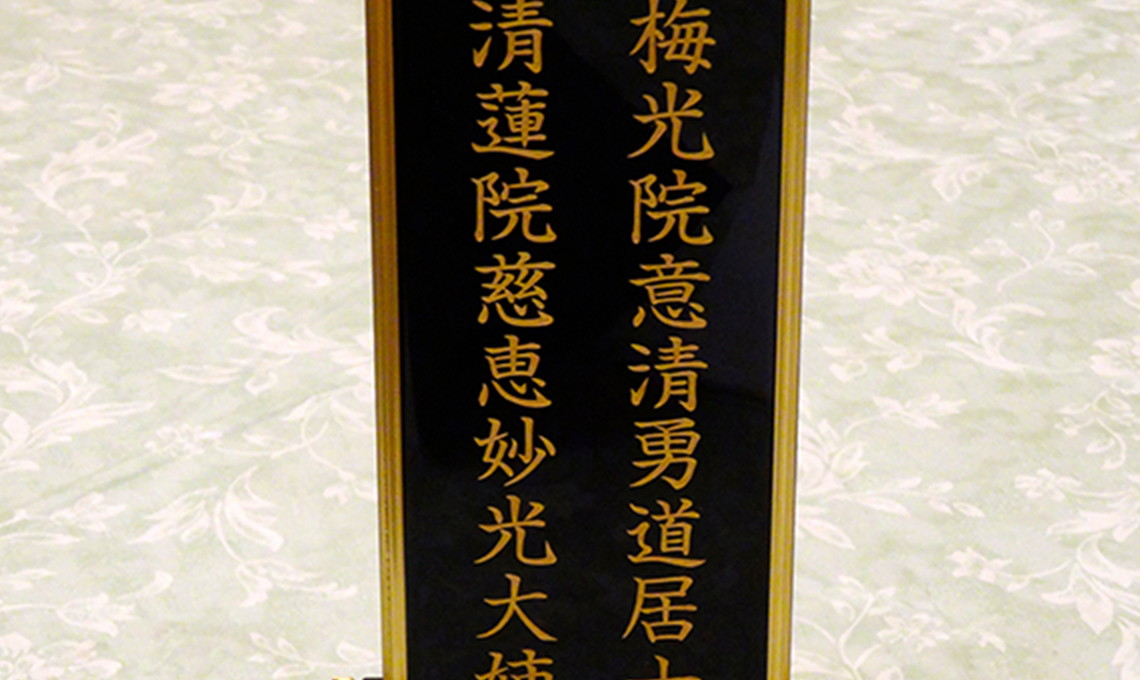 梅光院意清勇道居
清蓮院慈恵妙光大